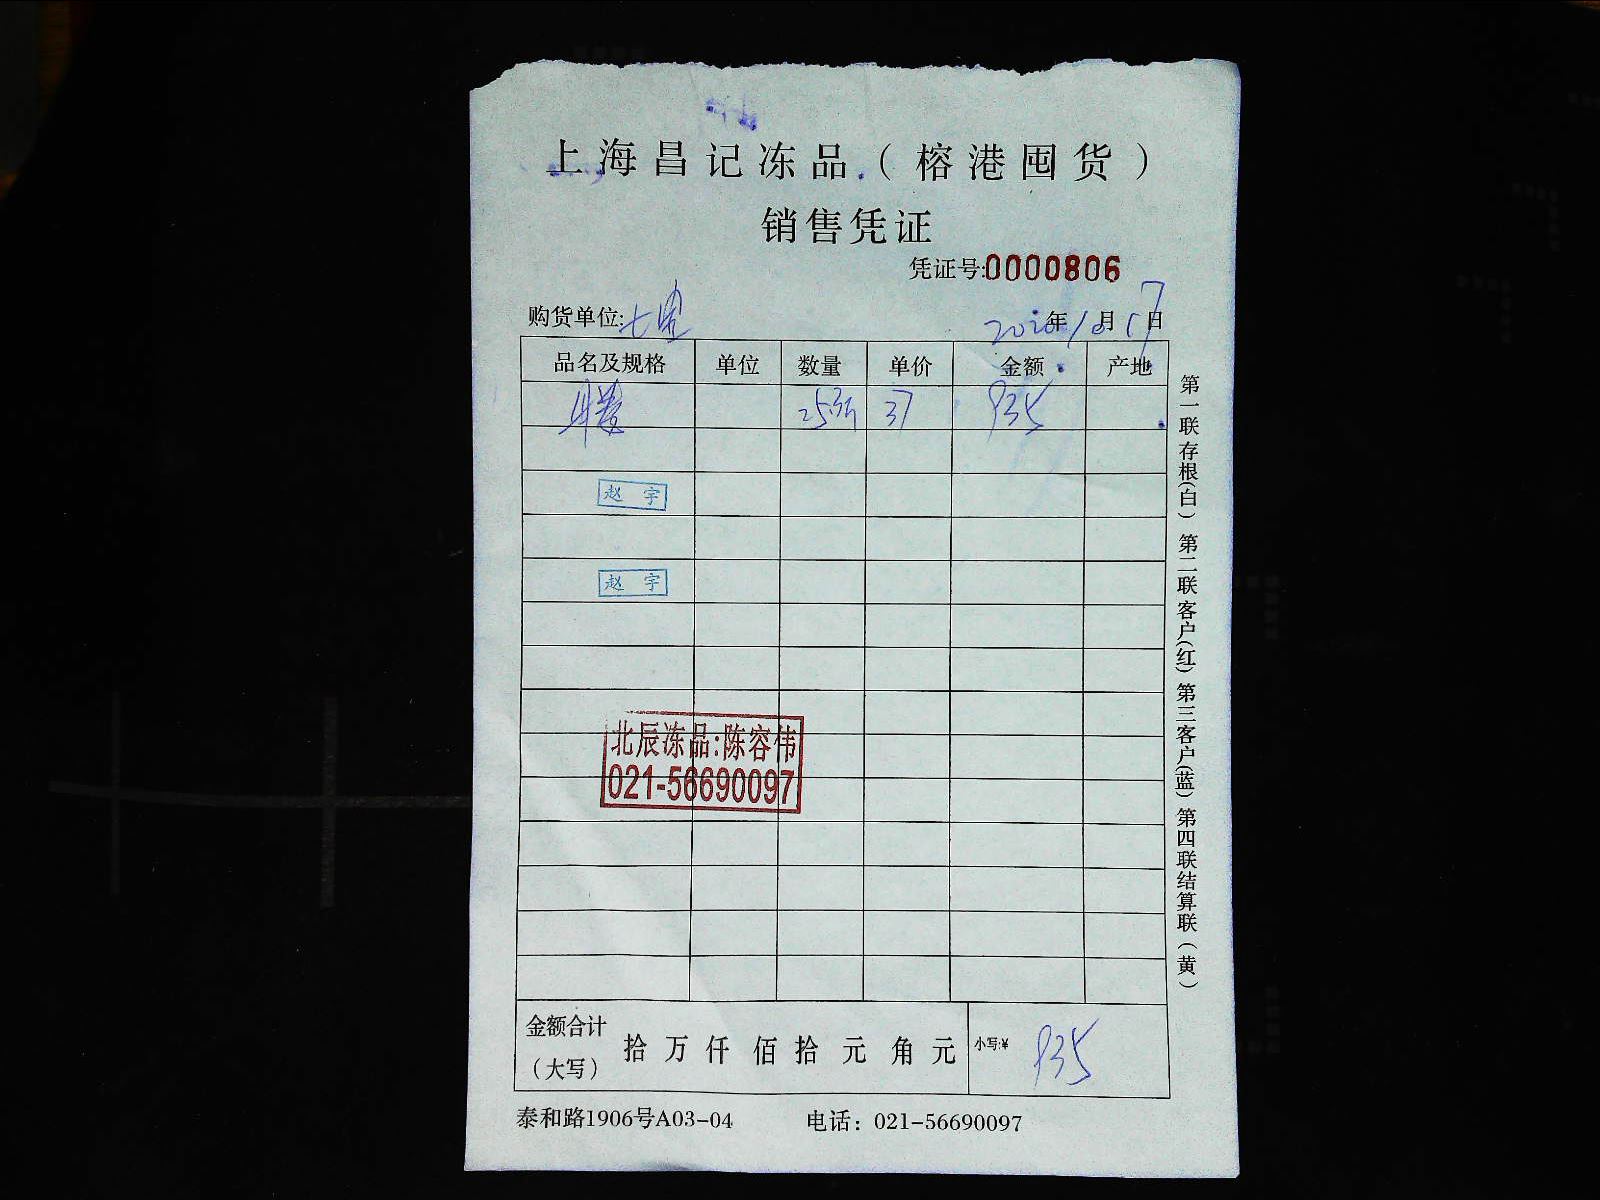 上海昌记冻品（榕港囤货）
销售凭证
凭证号:0000806
购货单位:七
2020年10月17日
品名及规格 单位 数量 单价 金额 产地
25 37 935
赵宇
赵宇
北辰冻品:陈容伟
021-56690097
金额合计（大写） 拾万仟佰拾元角元 小写:¥ 935
泰和路1906号A03-04 电话：021-56690097
第一联存根（白）第二联客户（红）第三客户（蓝）第四联结算联（黄）